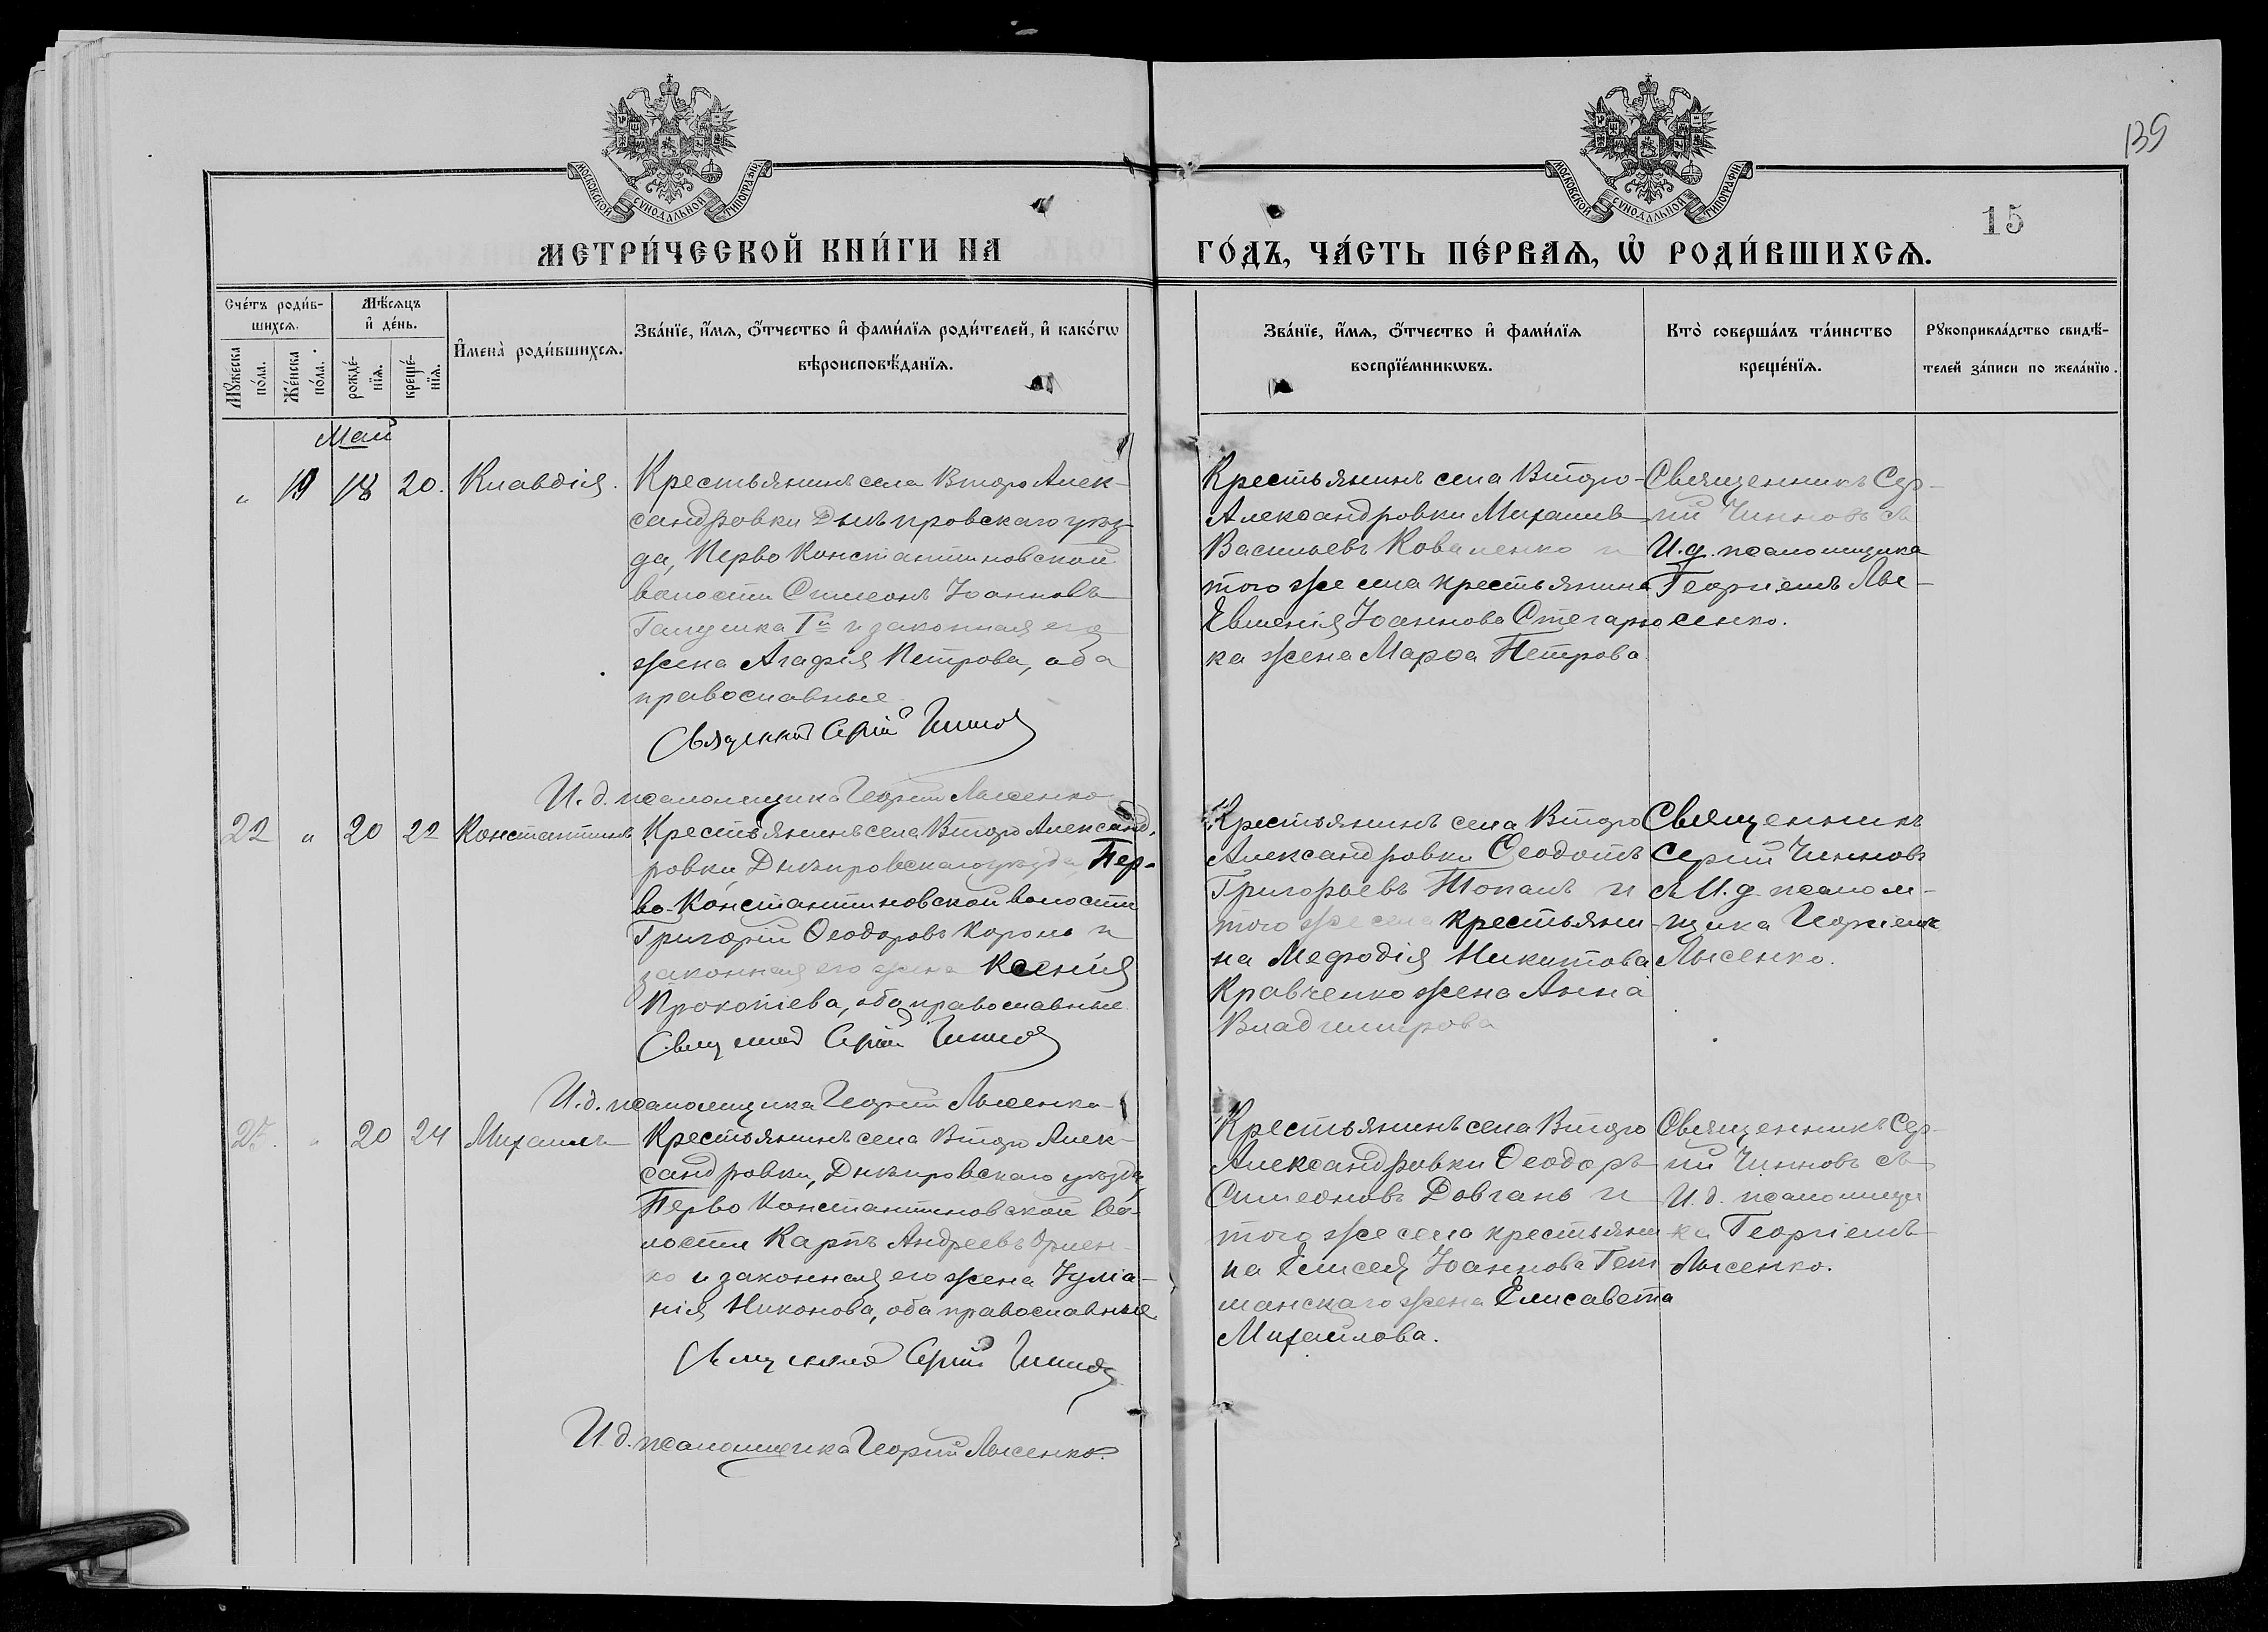 139
15
МОСКОВСКОЙ СѴНОДАЛЬНОЙ ТИПОГРАФІИ
МОСКОВСКОЙ СѴНОДАЛЬНОЙ ТИПОГРАФІИ
МЕТРИ́ЧЕСКОЙ КНИ́ГИ НА
ГО́ДЪ, ЧА́СТЬ ПЕ́РВАѦ, Ѡ҆ РОДИ́ВШИХСѦ.
Сче́тъ роди́в-
шихсѧ.
Мꙋ́жеска по́ла.
Же́нска по́ла.
Мѣ́сѧцъ
и҆ де́нь.
рожде́-нїѧ.
креще́-нїѧ.
И҆мена̀ роди́вшихсѧ.
Зва́нїе, и҆́мѧ, ѻ҆́тчество и҆ фами́лїѧ роди́телей, и҆ како́гѡ
вѣроисповѣ́данїѧ.
Зва́нїе, и҆́мѧ, ѻ҆́тчество и҆ фами́лїѧ
воспрїе́мникѡвъ.
Кто̀ соверша́лъ та́инство
креще́нїѧ.
Рꙋкоприкла́дство свидѣ́-
телей за́писи по жела́нїю.
Май
" 19 18 20. Клавдія.
Крестьянинъ села Второ Алек-
сандровки Днѣпровскаго уѣз-
да, Перво Константиновской
волости Симеонъ Іоанновъ
Галушка Iй и законная его
жена Агафія Петрова, оба
православные
Священникъ Сергій Чинновъ
И. д. псаломщика Георгій Лысенко
Крестьянинъ села Второ-
Александровки Михаилъ
Васильевъ Коваленко и
того же села крестьянина
Евменія Іоаннова Стегарю
ка жена Марѳа Петрова
Священникъ Сер-
гій Чинновъ съ
И. д. псаломщика
Георгіемъ Лы-
сенко.
22 " 20 22 Константинъ
Крестьянинъ села Второ Александ-
ровки, Днѣпровскаго уѣзда, Пер-
во-Константиновской волости
Григорій Ѳеодоровъ Король и
законная его жена Ксенія
Прокопіева, оба православные.
Священникъ Сергій Чинновъ
И. д. псаломщика Георгій Лысенко
Крестьянинъ села Второ
Александровки Ѳеодотъ
Григорьевъ Топалъ и
того же села крестьяни-
на Меѳодія Никитова
Кравченко жена Анна
Владимирова
Священникъ
Сергій Чинновъ
съ И. д. псалом-
щика Георгіемъ
Лысенко.
" 20 24 Михаилъ
Крестьянинъ села Второ Алек-
сандровки, Днѣпровскаго уѣзда,
Перво Константиновской во-
лости Карпъ Андреевъ
и законная его жена Іуліа-
нія Никонова, оба православные
Священникъ Сергій Чинновъ
И. д. псаломщика Георгій Лысенко.
Крестьянинъ села Второ
Александровки Ѳеодоръ
Симеоновъ Довгань и
того же села крестьяни
на Елисея Іоаннова Гет
манскаго жена Елисавета
Михаилова.
Священникъ Сер-
гій Чинновъ съ
И. д. псаломщи
ка Георгіемъ
Лысенко.